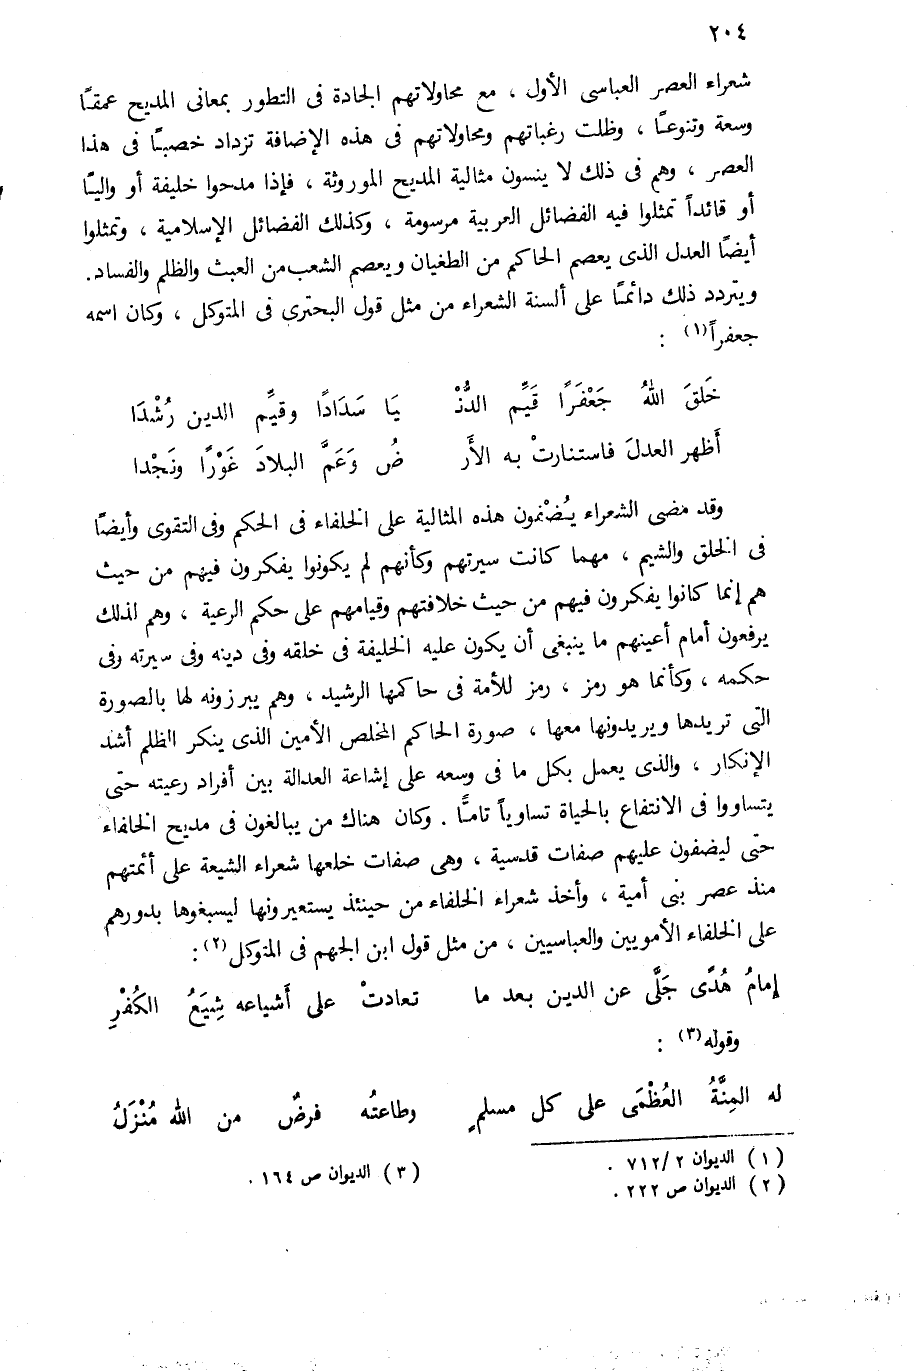 ٢٠٤
شعراء العصر العباسى الأول ، مع محاولاتهم الجادة فى التطور بمعانى المديح عمقـًا
وسعة وتنوعـًا ، وظلت رغباتهم ومحاولاتهم فى هذه الإضافة تزداد خصبـًا فى هذا
العصر ، وهم فى ذلك لا ينسون مثالية المديح الموروثة ، فإذا مدحوا خليفة أو واليـًا
أو قائداً تمثلوا فيه الفضائل العربية مرسومة ، وكذلك الفضائل الإسلامية ، وتمثلوا
أيضًا العدل الذى يعصم الحاكم من الطغيان ويعصم الشعب من العبث والظلم والفساد.
ويتردد ذلك دائمـًا على ألسنة الشعراء من مثل قول البحترى فى المتوكل ، وكان اسمه
جعفراً(١) :
خَلقَ اللهُ جَعْفَرًا قَيِّم الدُّنْـ يَا سَدَادًا وقيِّم الدين رُشْدَا
أظهر العدلَ فاستنارتْ به الأَر ضُ وَعَمَّ البلادَ غَوْرًا ونَجْدا
وقد مضى الشعراء يـُضْفون هذه المثالية على الخلفاء فى الحكم وفى التقوى وأيضًا
فى الخلق والشيم ، مهما كانت سيرتهم وكأنهم لم يكونوا يفكرون فيهم من حيث
هم إنما كانوا يفكرون فيهم من حيث خلافتهم وقيامهم على حكم الرعية ، وهم لذلك
يرفعون أمام أعينهم ما ينبغى أن يكون عليه الخليفة فى خلقه وفى دينه وفى سيرته وفى
حكمه ، وكأنما هو رمز ، رمز للأمة فى حاكمها الرشيد ، وهم يبرزونه لها بالصورة
التى تريدها ويريدونها معها ، صورة الحاكم المخلص الأمين الذى ينكر الظلم أشد
الإنكار ، والذى يعمل بكل ما فى وسعه على إشاعة العدالة بين أفراد رعيته حتى
يتساووا فى الانتفاع بالحياة تساوياً تامـًّا . وكان هناك من يبالغون فى مديح الخلفاء
حتى ليضفون عليهم صفات قدسية ، وهى صفات خلعها شعراء الشيعة على أئمتهم
منذ عصر بنى أمية ، وأخذ شعراء الخلفاء من حينئذ يستعيرونها ليسبغوها بدورهم
على الخلفاء الأمويين والعباسيين ، من مثل قول ابن الجهم فى المتوكل(٢) :
إمامُ هُدًى جَلَّى عن الدين بعد ما تعادتْ على أَشياعه شِيَعُ الكُفْرِ
وقوله(٣) :
له المِنَّةُ العُظْمَى على كل مسلمٍ وطاعتُه فرضٌ من الله مُنْزَلُ
(١) الديوان ٢/ ٧١٢ .
(٢) الديوان ص ٢٢٢ .
(٣) الديوان ص ١٦٤ .